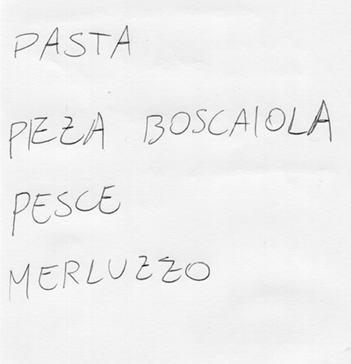 PASTA
PIZZA BOSCAIOLA
PESCE
MERLUZZO